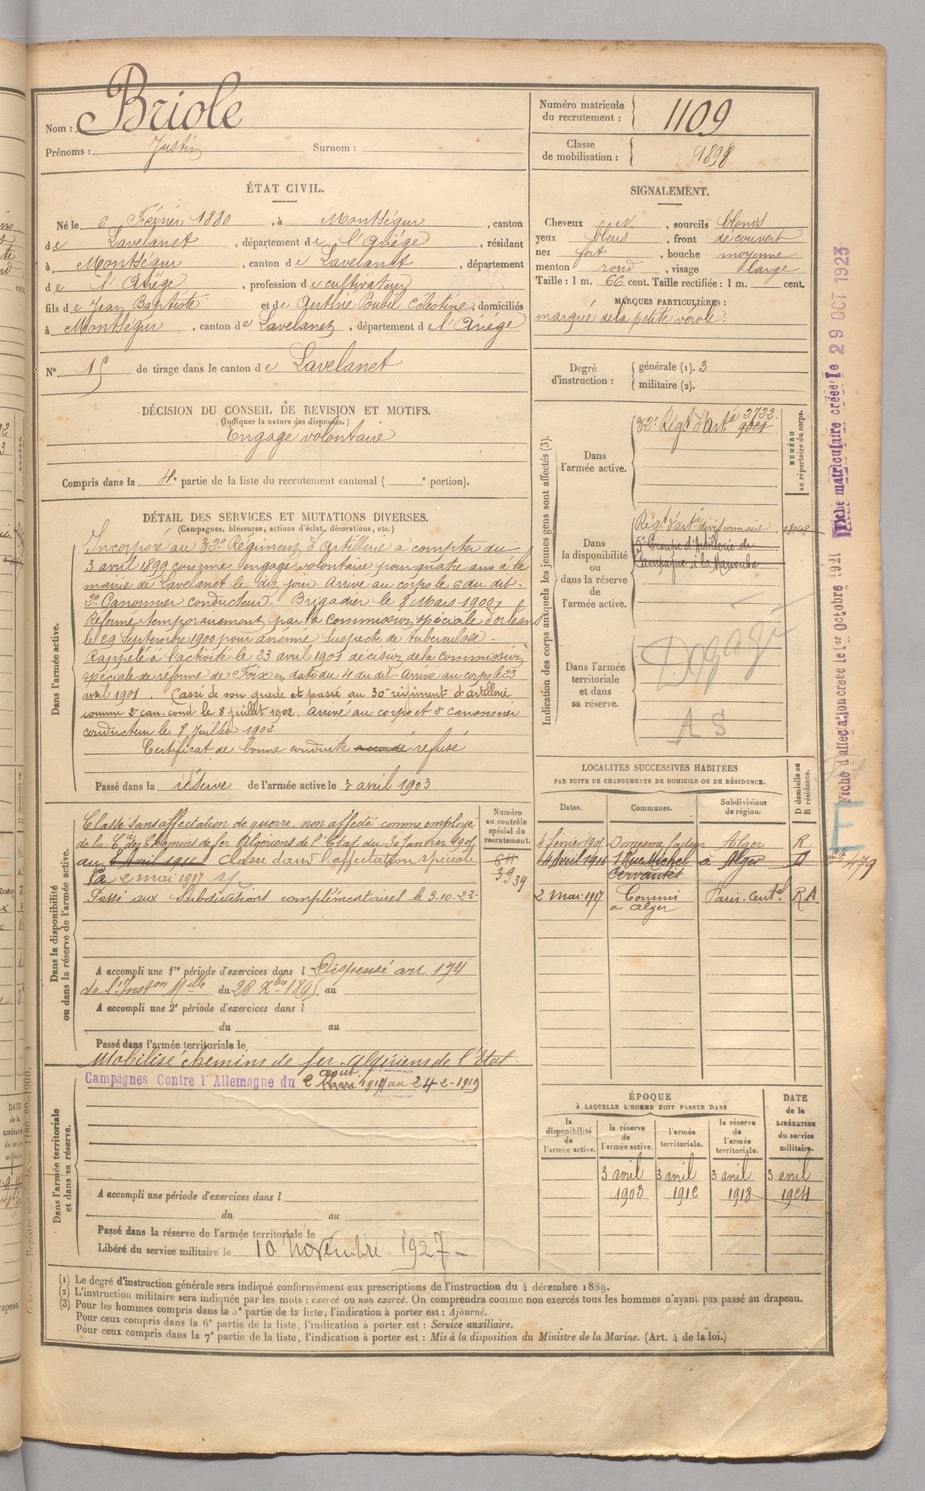 Nom : Briole
Prénoms : Justin Surnom :
Numéro matricule du recrutement : 1109
Classe de mobilisation : 1898
ÉTAT CIVIL.
Né le 6 Février 1880, à Montségur, canton
de Lavelanet, département de l'Ariége, résidant
à Montségur, canton de Lavelanet, département
de l'Ariége, profession de cultivateur
fils de Jean Baptiste et de Célestine, domiciliés
à Montségur, canton de Lavelanet, département de l'Ariége
N° 15 de tirage dans le canton de Lavelanet
SIGNALEMENT.
Cheveux, sourcils blonds
yeux bleus, front découvert
nez fort, bouche moyenne
menton rond, visage large
Taille : 1 m. 66 cent. Taille rectifiée : 1 m. cent.
MARQUES PARTICULIÈRES :
marqué de la petite vérole.
Degré d'instruction :
générale (1). 3
militaire (2).
DÉCISION DU CONSEIL DE REVISION ET MOTIFS.
(Indiquer la nature des dispenses.)
Engagé volontaire
Compris dans la 4e partie de la liste du recrutement cantonal ( e portion).
DÉTAIL DES SERVICES ET MUTATIONS DIVERSES.
(Campagnes, blessures, actions d'éclat, décorations, etc.)
Dans l'armée active.
Incorporé au 32e Régiment d'Artillerie à compter du
3 avril 1899 comme engagé volontaire pour quatre ans à la
mairie de Lavelanet le dit jour. Arrivé au corps le 6 du dit.
2e Canonnier conducteur. Brigadier le 8 Mars 1900,
Réformé temporairement par la commission spéciale d'Orléans
le 29 Septembre 1900 pour anémie suspecte de tuberculose.
Rappelé à l'activité le 23 avril 1901 décision de la commission
spéciale de réforme de Foix en date du 4 du dit. Arrivé au corps le 23
avril 1901. Cassé de son grade et passé au 30e régiment d'artillerie
comme 2e can. cond. le 8 juillet 1902. Arrivé au corps et 2e canonnier
conducteur le 9 Juillet 1902
Certificat de bonne conduite accordé refusé
Passé dans la réserve de l'armée active le 3 avril 1903
Indication des corps auxquels les jeunes gens sont affectés (3).
NUMÉRO au répertoire du corps.
Dans l'armée active.
32e Régt d'Artie 3732
Dans la disponibilité ou dans la réserve de l'armée active.
Régt d'artie divisionnaire
5e Groupe d'Artillerie de
Campagne à la Manouba
Dans l'armée territoriale et dans sa réserve.
A S
Dans la disponibilité ou dans la réserve de l'armée active.
Numéro au contrôle spécial du recrutement.
Classé sans affectation de guerre, non affecté comme employé
de la Cie des chemins de fer Algériens de l'Etat du 30 Janvier 1905
au 4 Avril 1916 Classé dans l'affectation spéciale
Le 2 mai 1917
Passé aux Subdivisions complémentaires le 3-10-22
3939
A accompli une 1re période d'exercices dans l Dispensé art 174
de l'Inston Mlle du 28 Xbre 1895 au
A accompli une 2e période d'exercices dans l
du au
Passé dans l'armée territoriale le
Mobilisé chemins de fer algériens de l'Etat
LOCALITÉS SUCCESSIVES HABITÉES
PAR SUITE DE CHANGEMENTS DE DOMICILE OU DE RÉSIDENCE.
Dates. Communes. Subdivisions de région. D domicile ou R résidence.
4 Avril 1916 1 Rue Michel Cervantès à Alger D
2 mai 1917 Commis à Alger Paris-Centl RA
Dans l'armée territoriale et dans sa réserve.
Campagnes Contre l'Allemagne du 2 août 1914 au 24-2-1919
A accompli une période d'exercices dans l
du au
Passé dans la réserve de l'armée territoriale le
Libéré du service militaire le 10 Novembre 1927
ÉPOQUE
À LAQUELLE L'HOMME DOIT PASSER DANS
la disponibilité de l'armée active. la réserve de l'armée active. l'armée territoriale. la réserve de l'armée territoriale.
DATE de la LIBÉRATION du service militaire.
3 avril 3 avril 3 avril 3 avril
1903 1912 1918 1924
(1) Le degré d'instruction générale sera indiqué conformément aux prescriptions de l'instruction du 4 décembre 1889.
(2) L'instruction militaire sera indiquée par les mots : exercé ou non exercé. On comprendra comme non exercés tous les hommes n'ayant pas passé au drapeau.
(3) Pour les hommes compris dans la 5e partie de la liste, l'indication à porter est : Ajourné.
Pour ceux compris dans la 6e partie de la liste, l'indication à porter est : Service auxiliaire.
Pour ceux compris dans la 7e partie de la liste, l'indication à porter est : Mis à la disposition du Ministre de la Marine. (Art. 4 de la loi.)
Fiche matriculaire créée le 29 OCT 1923
Fiche d'affectation créée le 1er Octobre 1921